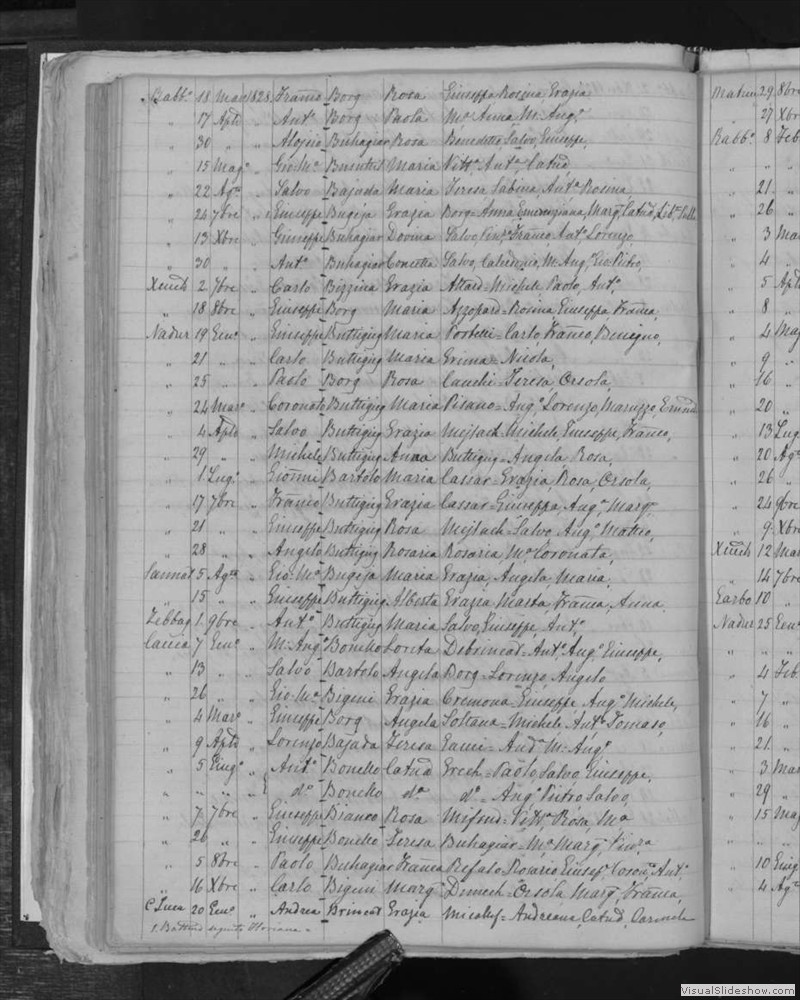 Rabb.o 18 Mar 1828 Franco Borg Rosa Giuseppa Rosina Grazia
" 17 Aple " Ant.o Borg Paola M.a Anna, M. Ang.o
" 30 " " Aloisio Buhagiar Rosa Benedetto, Salvo, Giuseppe,
" 15 Mag.o " Gio M.a Busuttil Maria Vitt.a Ant.o Catnd
" 22 Ag.o " Salvo Bajada Maria Teresa Sabina, Ant.a Rosina
" 24 7bre " Giuseppe Bugeja Grazia Borg = Anna Emerenziana, Marg Catnd,
" 13 Xbre " Giuseppe Buhagiar Dovina Salvo Franco Ant.o Lorenzo,
" 30 " " Ant.o Buhagiar Concetta Salvo, M. Ang.o Gio Pietro,
Xeuch 2 7bre " Carlo Bizzina Grazia Attard = Michele Paolo, Ant.o
" 18 8bre " Giuseppe Borg Maria Azzopard = Rosina Giuseppa Franca,
Nadur 19 Gen.o " Giuseppe Buttigieg Maria Portelli = Carlo Franco, Benigno,
" 21 " " Carlo Buttigieg Maria Grima = Nicola,
" 25 " " Paolo Borg Rosa Cauchi = Teresa, Orsola,
" 24 Mar.o " Coronato Buttigieg Maria Pisano = Ang.o Lorenzo, Maruzzo,
" 4 Aple " Salvo Buttigieg Grazia Mejlach Michele, Giuseppe, Franco,
" 29 " " Michele Buttigieg Anna Buttigieg = Angela Rosa,
" 1 Lug.o " Gionni Bartolo Maria Cassar = Grazia, Rosa, Orsola,
" 17 7bre " Franco Buttigieg Grazia Cassar = Giuseppa, Ang.a Marg
" 21 " " Giuseppe Buttigieg Rosa Mejlach = Salvo Ang.o Matteo,
" 28 " " Angelo Buttigieg Rosaria Rosaria, M.a Coronata,
Sannat 5 Ag.to " Gio M.a Bugeja Maria Grazia, Angela Maria,
" 15 " " Giuseppe Buttigieg Alberta Grazia Marta, Franca Anna
Zebbug 1 9bre " Ant.o Buttigieg Maria Salvo, Giuseppe, Ant.o
Caccia 7 Gen.o " M. Ang.o Bonello Loreta Debrincat = Ant.o Ang.o Giuseppe,
" 13 " " Salvo Bartolo Angela Borg = Lorenzo, Angelo
" 26 " " Gio M.a Bigeni Grazia Cremona = Giuseppe Ang.o Michele,
" 4 Mar.o " Giuseppe Borg Angela Soltana = Michele Ant.o Tomaso,
" 9 Aple " Lorenzo Bajada Teresa And.a M. Ang.o
" 5 Giug.o " Ant.o Bonello Catnd Grech = Paolo, Salvo, Giuseppe,
" " " " d.o Bonello d.a d.o = Ang.o Pietro Salvo,
" 7 7bre " Giuseppe Bianco Rosa Mifsud = Vitt.a Rosa M.a
" 26 " " Giuseppe Bonello Teresa Buhagiar M.a Marg
" 5 8bre " Paolo Buhagiar Franca Refalo = Rosario Giusep.e Ant.o
" 16 Xbre " Carlo Bigeni Marg Dimech = Orsola Marg, Franca,
C. Luca 20 Gen.o " Andrea Brincat Grazia Micallef = Andreana, Catnd, Carmela
seguito Floriana =
Matrim 29 8bre
" 27 Xbre
Rabb.o 8 Feb
" " "
" 21 "
" 26 "
" 3 Mar
" 4 "
" 5 Aple
" 8 "
" 4 Mag
" 9 "
" 16 "
" 20 "
" 13 Lug
" 20 Ag.o
" 26 "
" 24 9bre
" 9 Xbre
Xeuch 12 Mar
" 14 7bre
Garbo 10 "
Nadur 25 Gen.o
" " "
" 4 Feb
" 7 "
" 16 "
" 21 "
" 3 Mar
" 29 "
" 15 Mag
" 10 Giug
" 4 Ag.o
VisualSlideshow.com